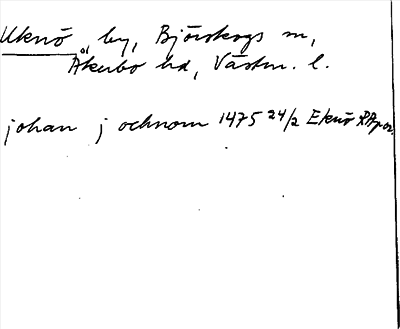 Uknö by, Björskogs sn,
Åkerbo hd, Västm. l.
johan j ochnom 1475 24/2 Eknö RApor